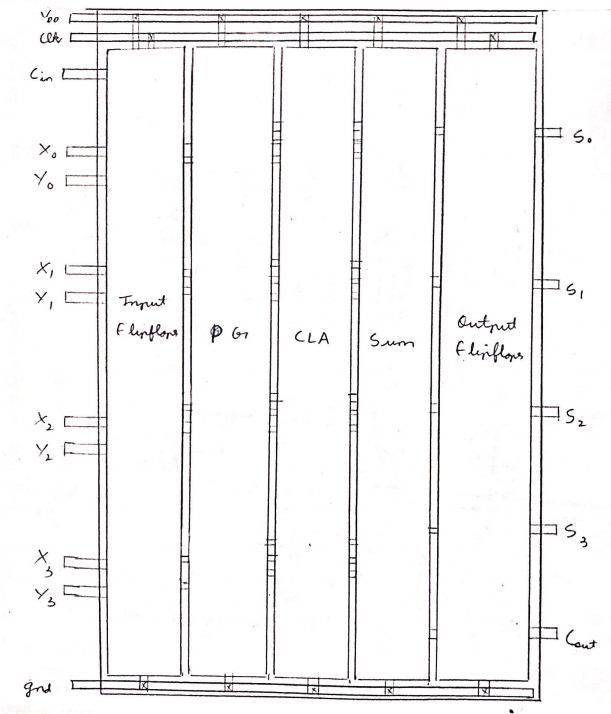 VDD
Clk
Cin
X0
Y0
X1
Y1
X2
Y2
X3
Y3
gnd
Input
flipflops
PG
CLA
Sum
Output
flipflops
S0
S1
S2
S3
Cout